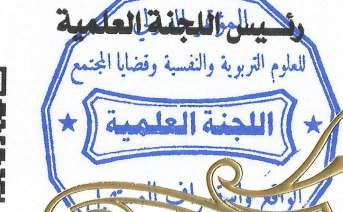 رئيس اللجنة العلمية
للعلوم التربوية والنفسية وقضايا المجتمع
اللجنة العلمية
الواقع